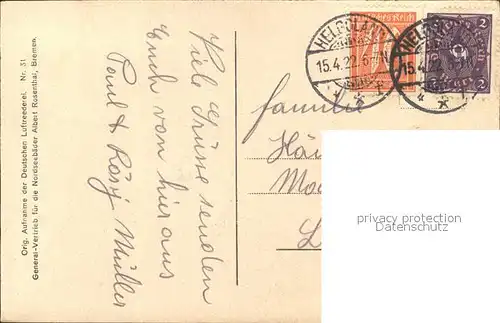 Orig. Aufnahme der Deutschen Luftreederei. Nr. 31
General-Vertrieb für die Nordseebäder Albert Rosenthal, Bremen.
Viele Grüsse senden
Euch von hier aus
Paul & Rösy Müller
Deutsches Reich
HELGOLAND
15.4.22
HELGOLAND
15.4.22
2
2
Familie
privacy protection
Datenschutz